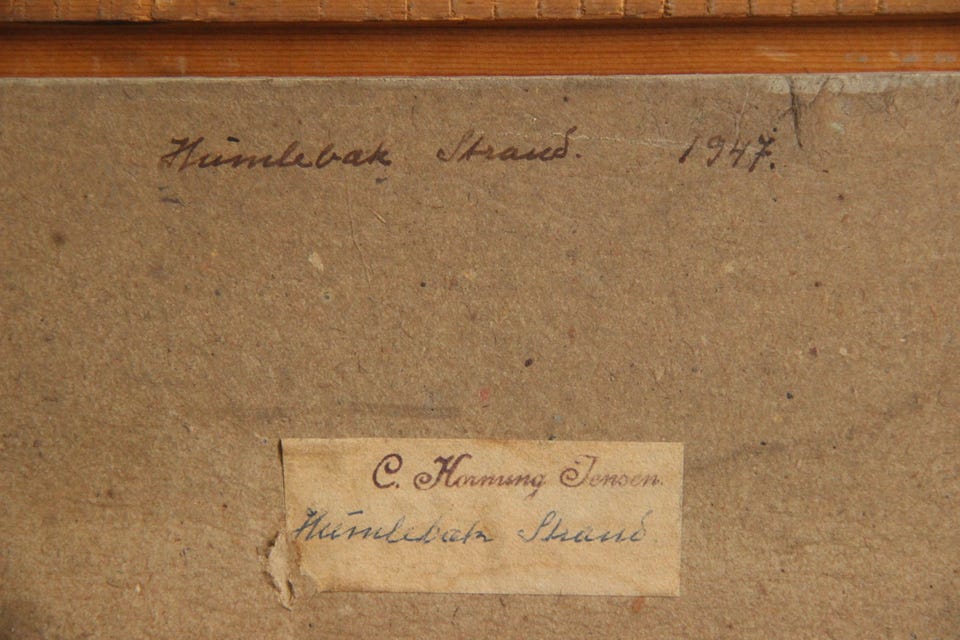 Humlebæk Strand. 1947.
C. Hornung Jensen.
Humlebæk Strand.